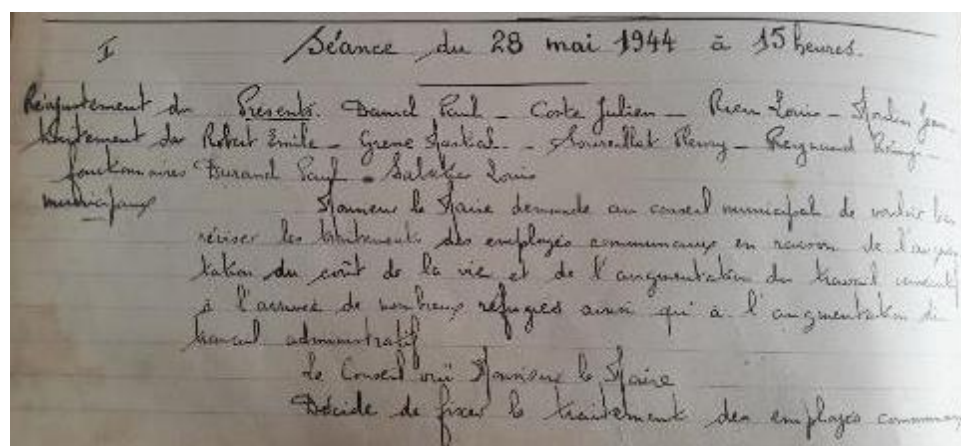 I Séance du 28 mai 1944 à 15 heures.
Réajustement du Présents. Daniel Paul _ Coste Julien _ Rieu Louis _ Moulin Jean
traitement des Robert Emile _ Martial _ Henry _ Reynaud Rémy _
fonctionnaires Durand Paul _ Sabatier Louis
municipaux Monsieur le Maire demande au conseil municipal de vouloir bien
réviser les traitements des employés communaux en raison de l'augmen
tation du coût de la vie et de l'augmentation du travail
à l'arrivée de nombreux réfugiés ainsi qu'à l'augmentation du
travail administratif
Le Conseil ouï Monsieur le Maire
Décide de fixer le traitement des employés communaux